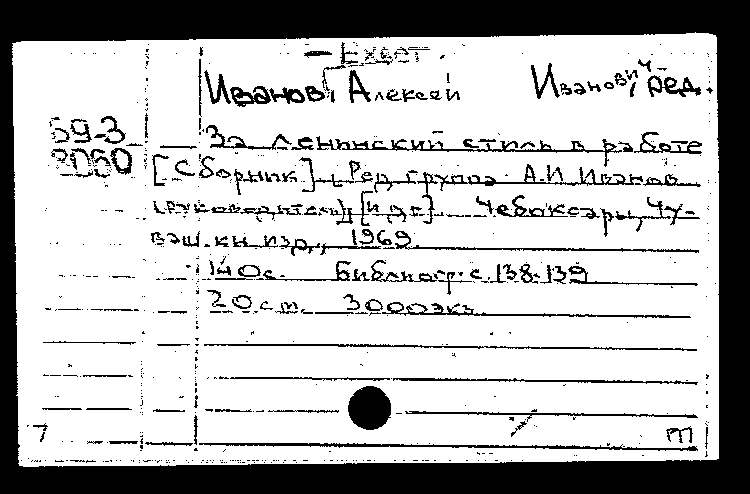 Иванов, Алексей Иванович, ред.
69-3
2060
За ленинский стиль в работе
[Сборник]. [Ред. группа: А.И. Иванов
(руководитель) [и др.]. Чебоксары, Чу-
ваш. кн. изд., 1969.
140 с. Библиогр. с. 138-139
20 см. 3000 экз.
7
m